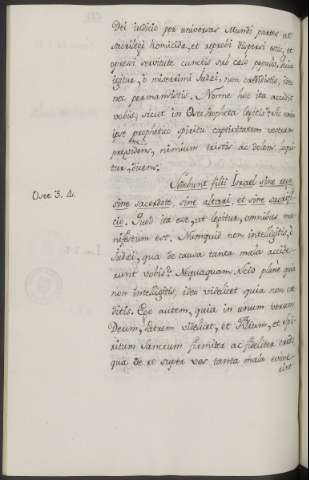 Dei iudicio per universas Mundi partes ut
sacrilegi homicidae, et reprobi dispersi estis, et
gravi servitute cunctis sub caelo populis
igitur, o miserrimi Judei, non credidistis, ideo
non permansistis. Nonne hec ita accidit
vobis, sicut in Osee Propheta legitis? Hic enim
ipse prophetico spiritu captivitatem vestram
previdens, nimium tristis ac dolens loqui
tur, dicens.
Sedebunt filii Israel sine rege
Osee 3. 4.
sine sacerdote, sine altari, et sine sacrifi
cio. Quod ita est, ut legitur, omnibus ma
nifestum est. Numquid non intelligitis, o
Judei, qua de causa tanta mala accide
runt vobis? Nequaquam. Scio plane quia
non intelligitis, ideo videlicet quia non cre
ditis. Ego autem, quia in unum verum
Deum, Patrem videlicet, et Filium, et Spi
ritum Sanctum firmiter ac fideliter credo
qua de re super vos tanta mala evene
rint